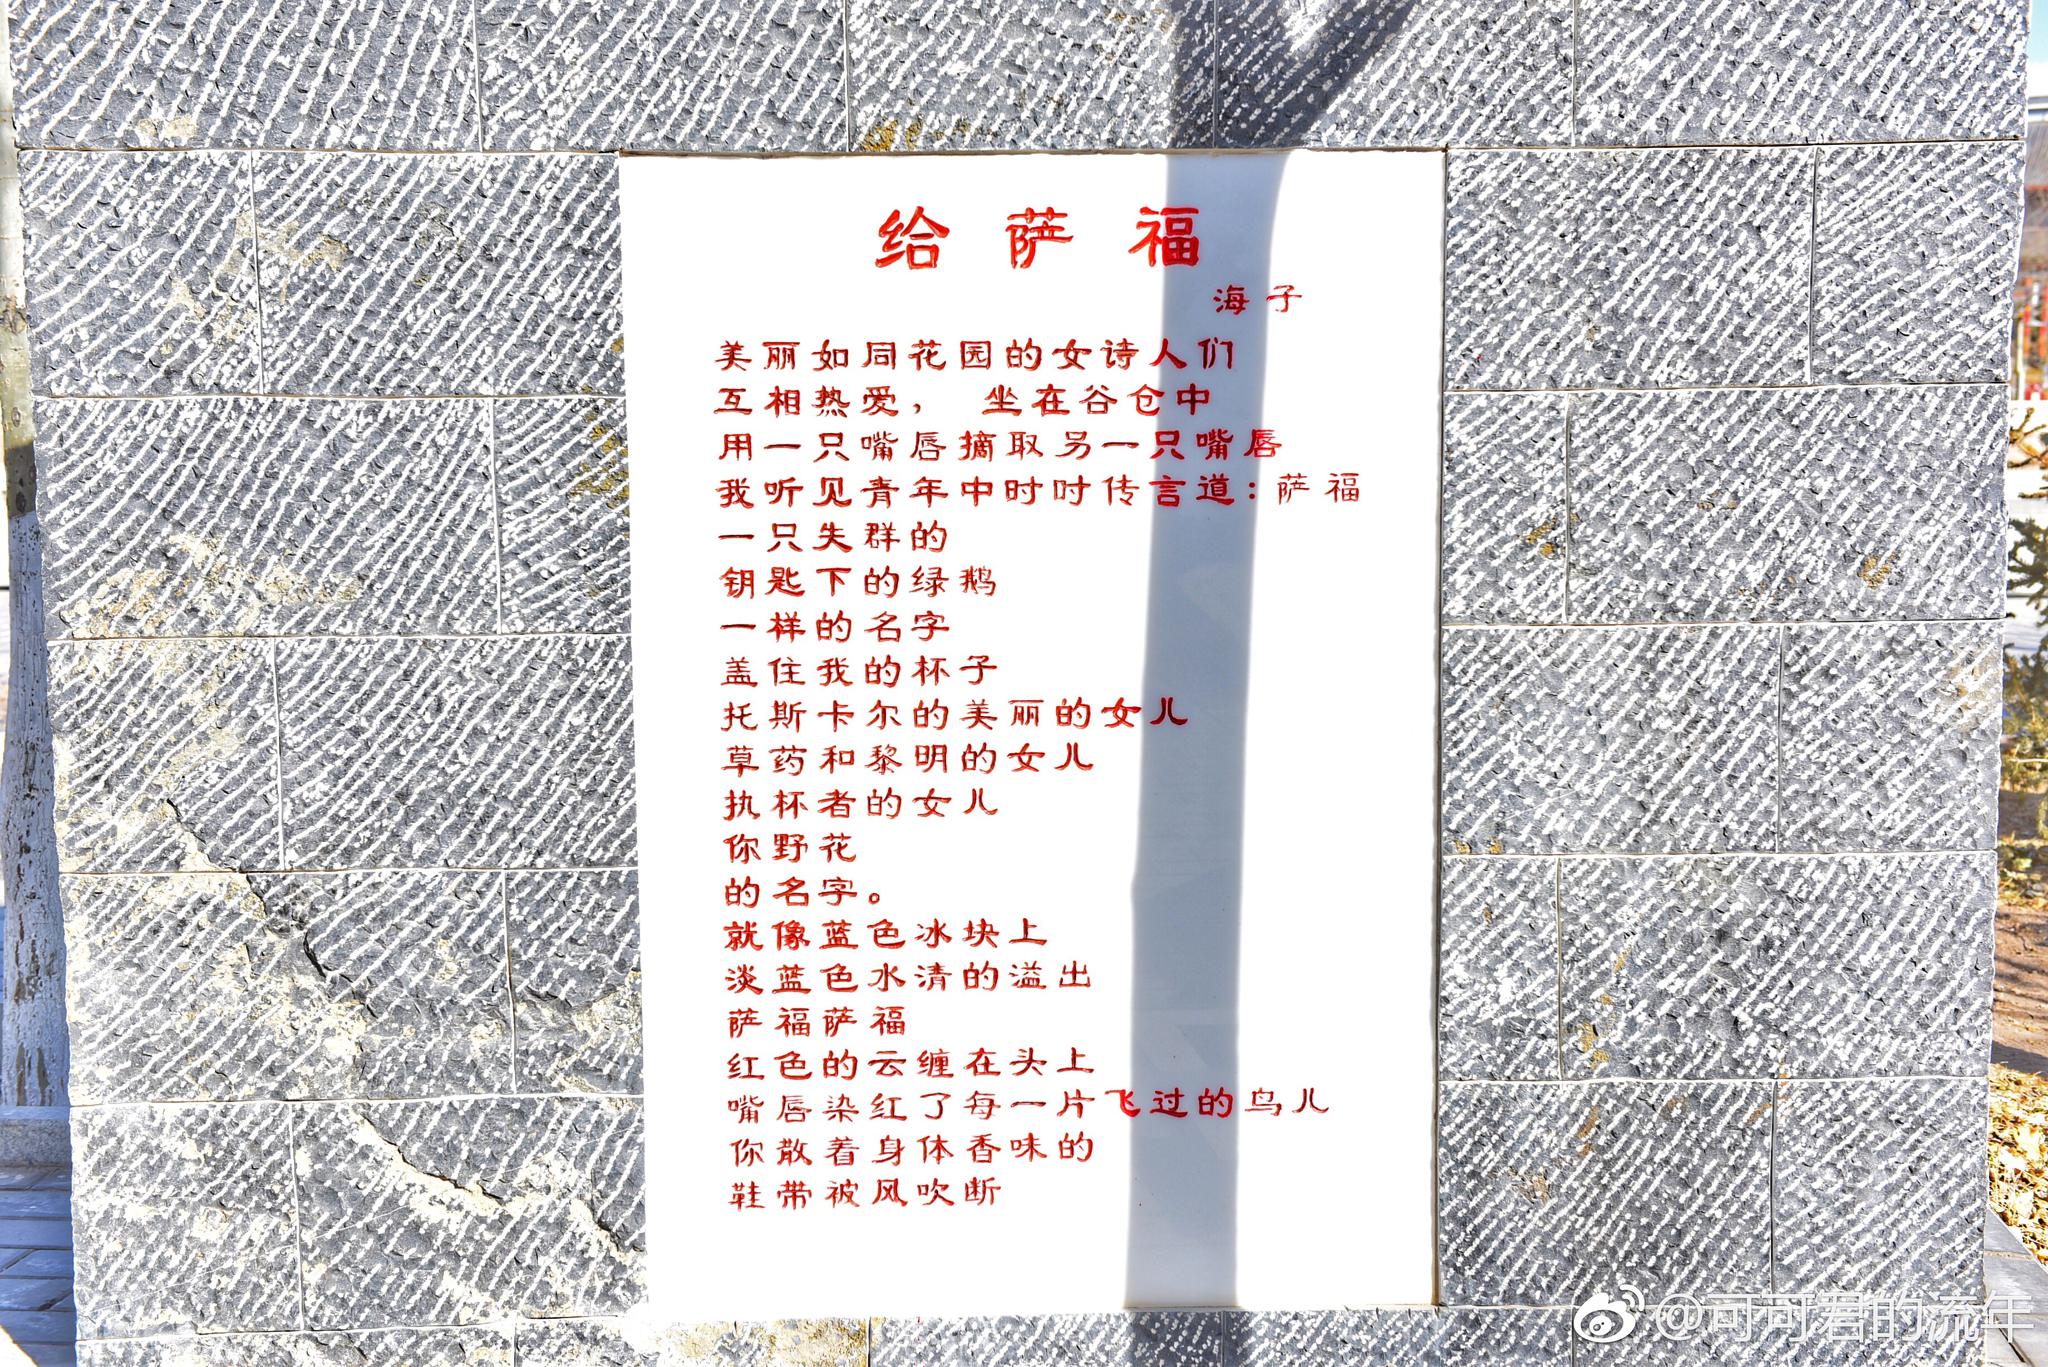 给萨福
海子
美丽如同花园的女诗人们
互相热爱，坐在谷仓中
用一只嘴唇摘取另一只嘴唇
我听见青年中时时传言道：萨福
一只失群的
钥匙下的绿鹅
一样的名字
盖住我的杯子
托斯卡尔的美丽的女儿
草药和黎明的女儿
执杯者的女儿
你野花
的名字。
就像蓝色冰块上
淡蓝色水清的溢出
萨福萨福
红色的云缠在头上
嘴唇染红了每一片飞过的鸟儿
你散着身体香味的
鞋带被风吹断
@可可君的流年